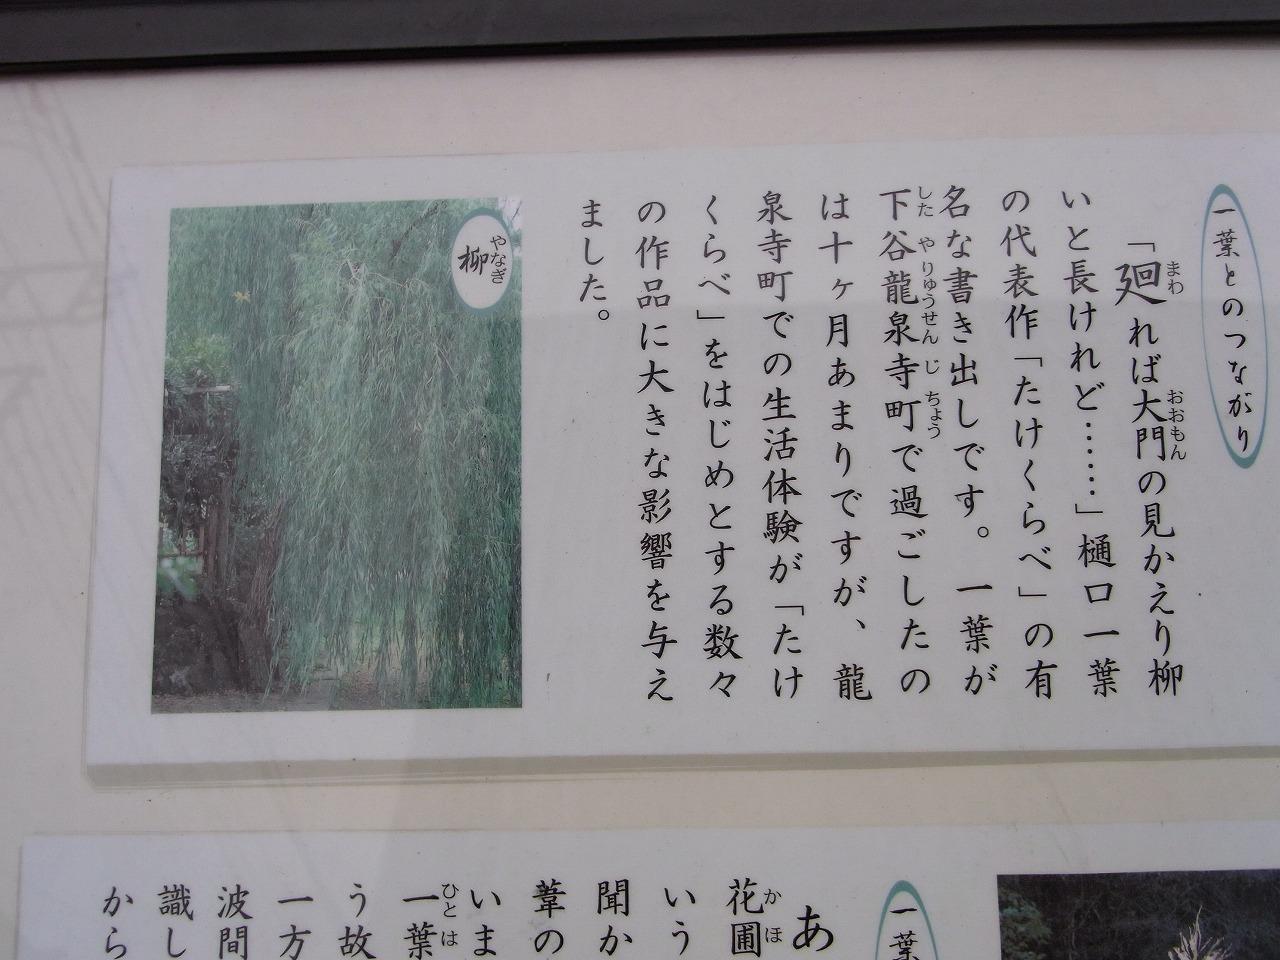 一葉とのつながり
「廻れば大門の見かえり柳
まわ
おおもん
いと長けれど……」樋口一葉
の代表作「たけくらべ」の有
名な書き出しです。一葉が
下谷龍泉寺町で過ごしたの
した や りゅうせん じ ちょう
は十ヶ月あまりですが、龍
泉寺町での生活体験が「たけ
くらべ」をはじめとする数々
の作品に大きな影響を与え
ました。
柳
やなぎ
一葉
あ
花圃
かほ
いう
聞か
葦の
いま
一葉
ひとは
う故
一方
波間
識し
から